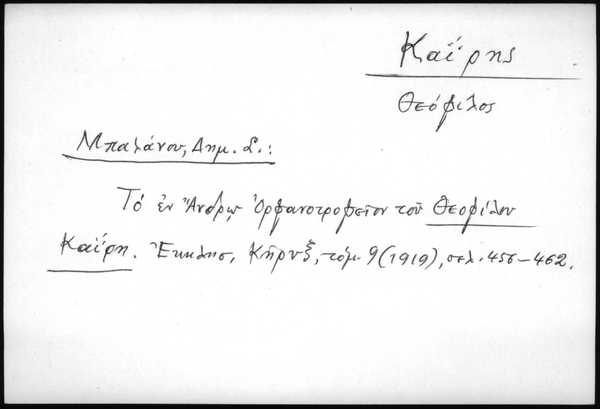 Καΐρης
Θεόφιλος
Μπαλάνου, Δημ. Σ.:
Τό ἐν Ἄνδρῳ Ὀρφανοτροφεῖον τοῦ Θεοφίλου
Καΐρη. Ἐκκλησ. Κῆρυξ, τόμ. 9 (1919), σελ. 456-462.